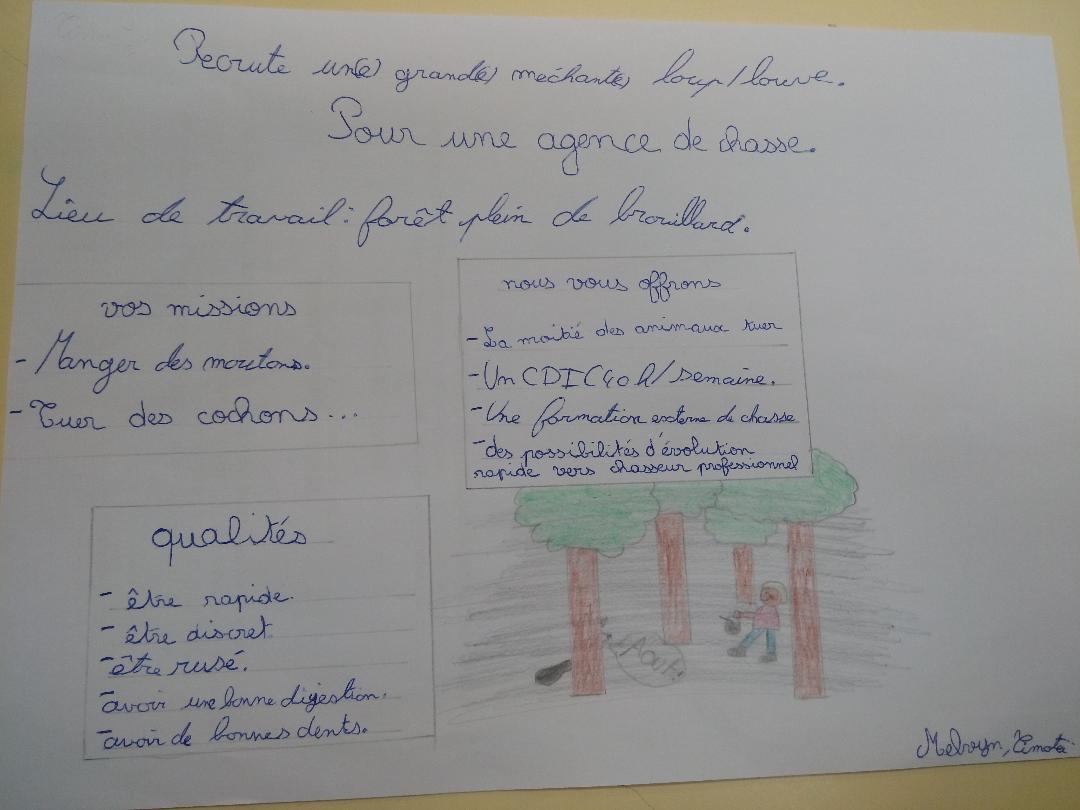 Recrute un(e) grand(e) méchant(e) loup/louve.
Pour une agence de chasse.
Lieu de travail: forêt plein de brouillard.
vos missions
- Manger des moutons.
- Tuer des cochons...
nous vous offrons
- La moitié des animaux tuer
- Un CDI (40 h/semaine.
- Une formation externe de chasse
- des possibilités d'évolution
rapide vers chasseur professionnel
qualités
- être rapide.
- être discret
- être rusé.
- avoir une bonne digéstion.
- avoir de bonnes dents.
Aouh!
Melvyn, Timoté